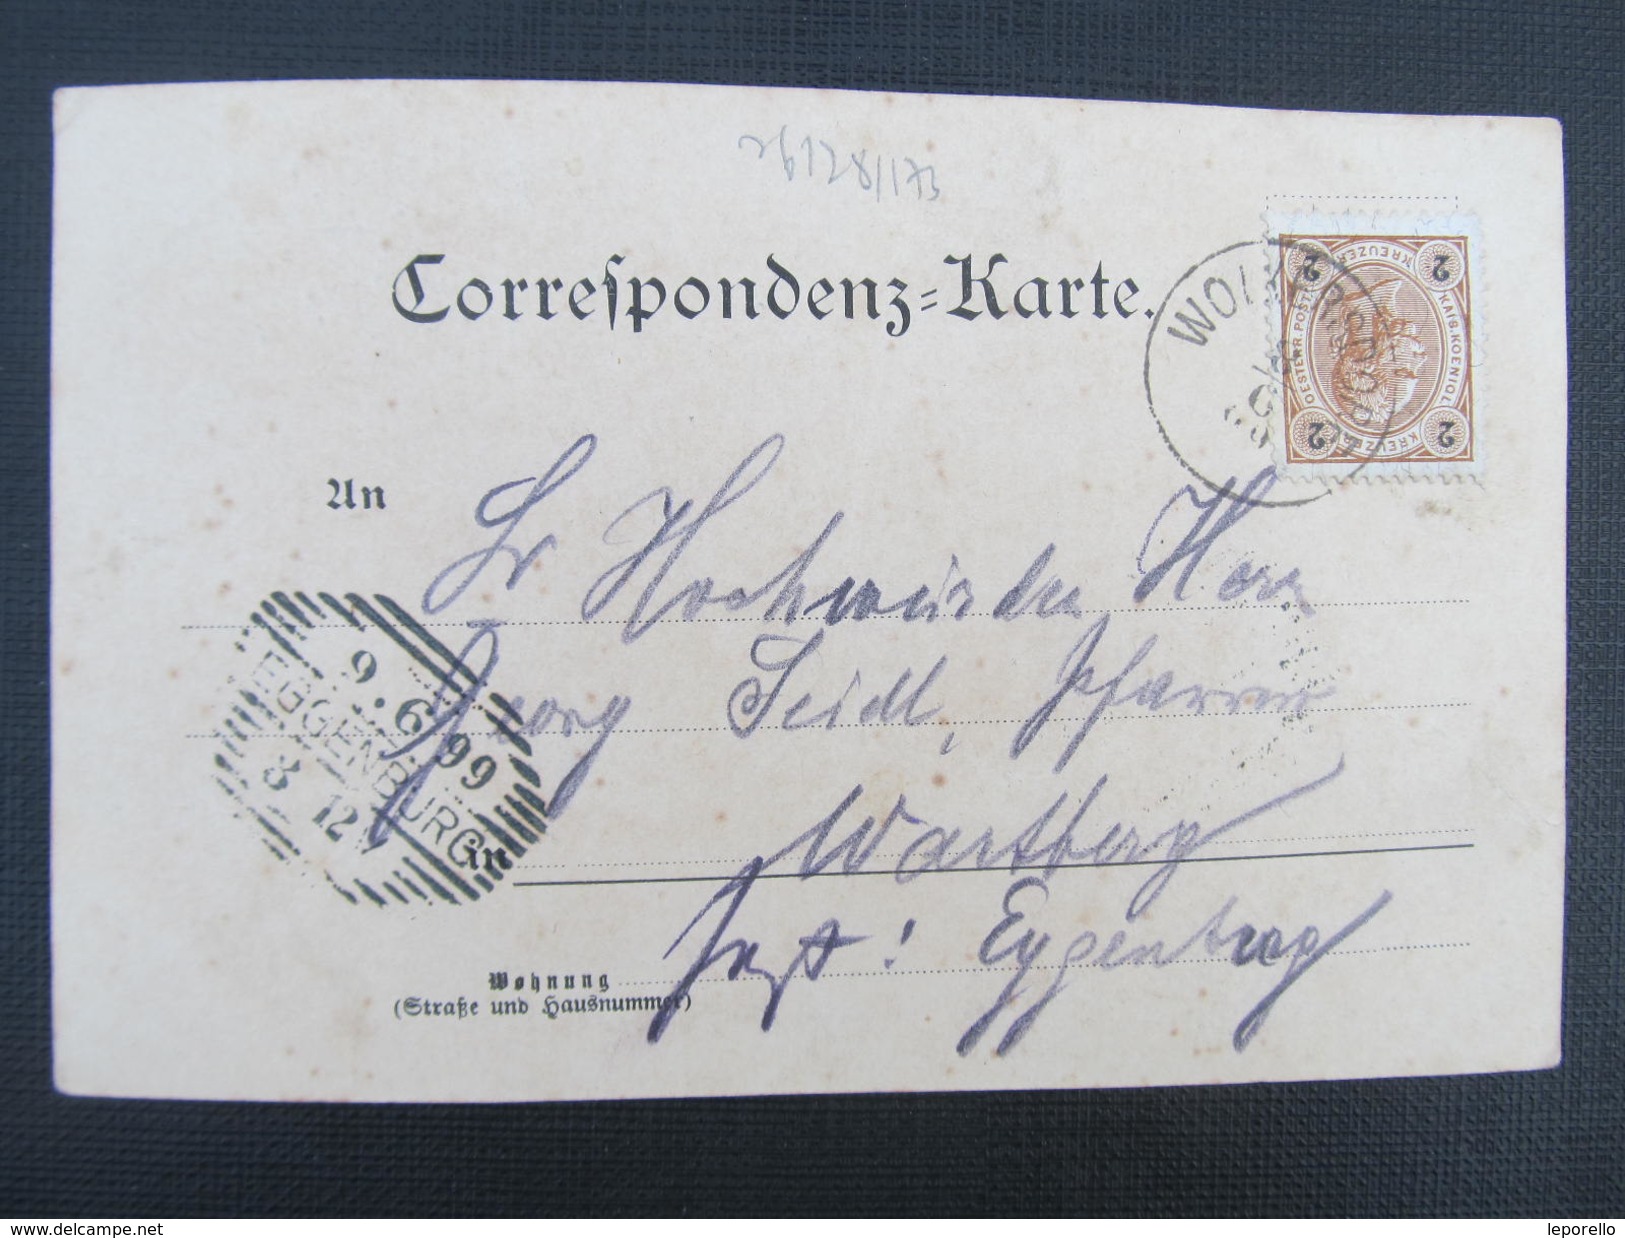 Correspondenz-Karte.
2 KREUZER 2
OESTERR. POST.
KAIS. KOENIGL.
2 2
An
Sr Hochwürden Herr
Georg Seidl, Pfarrer
in Wartberg
Post: Eggenburg
EGGENBURG
9.6.99
8 12
Wohnung
(Straße und Hausnummer)
www.delcampe.net
leporello